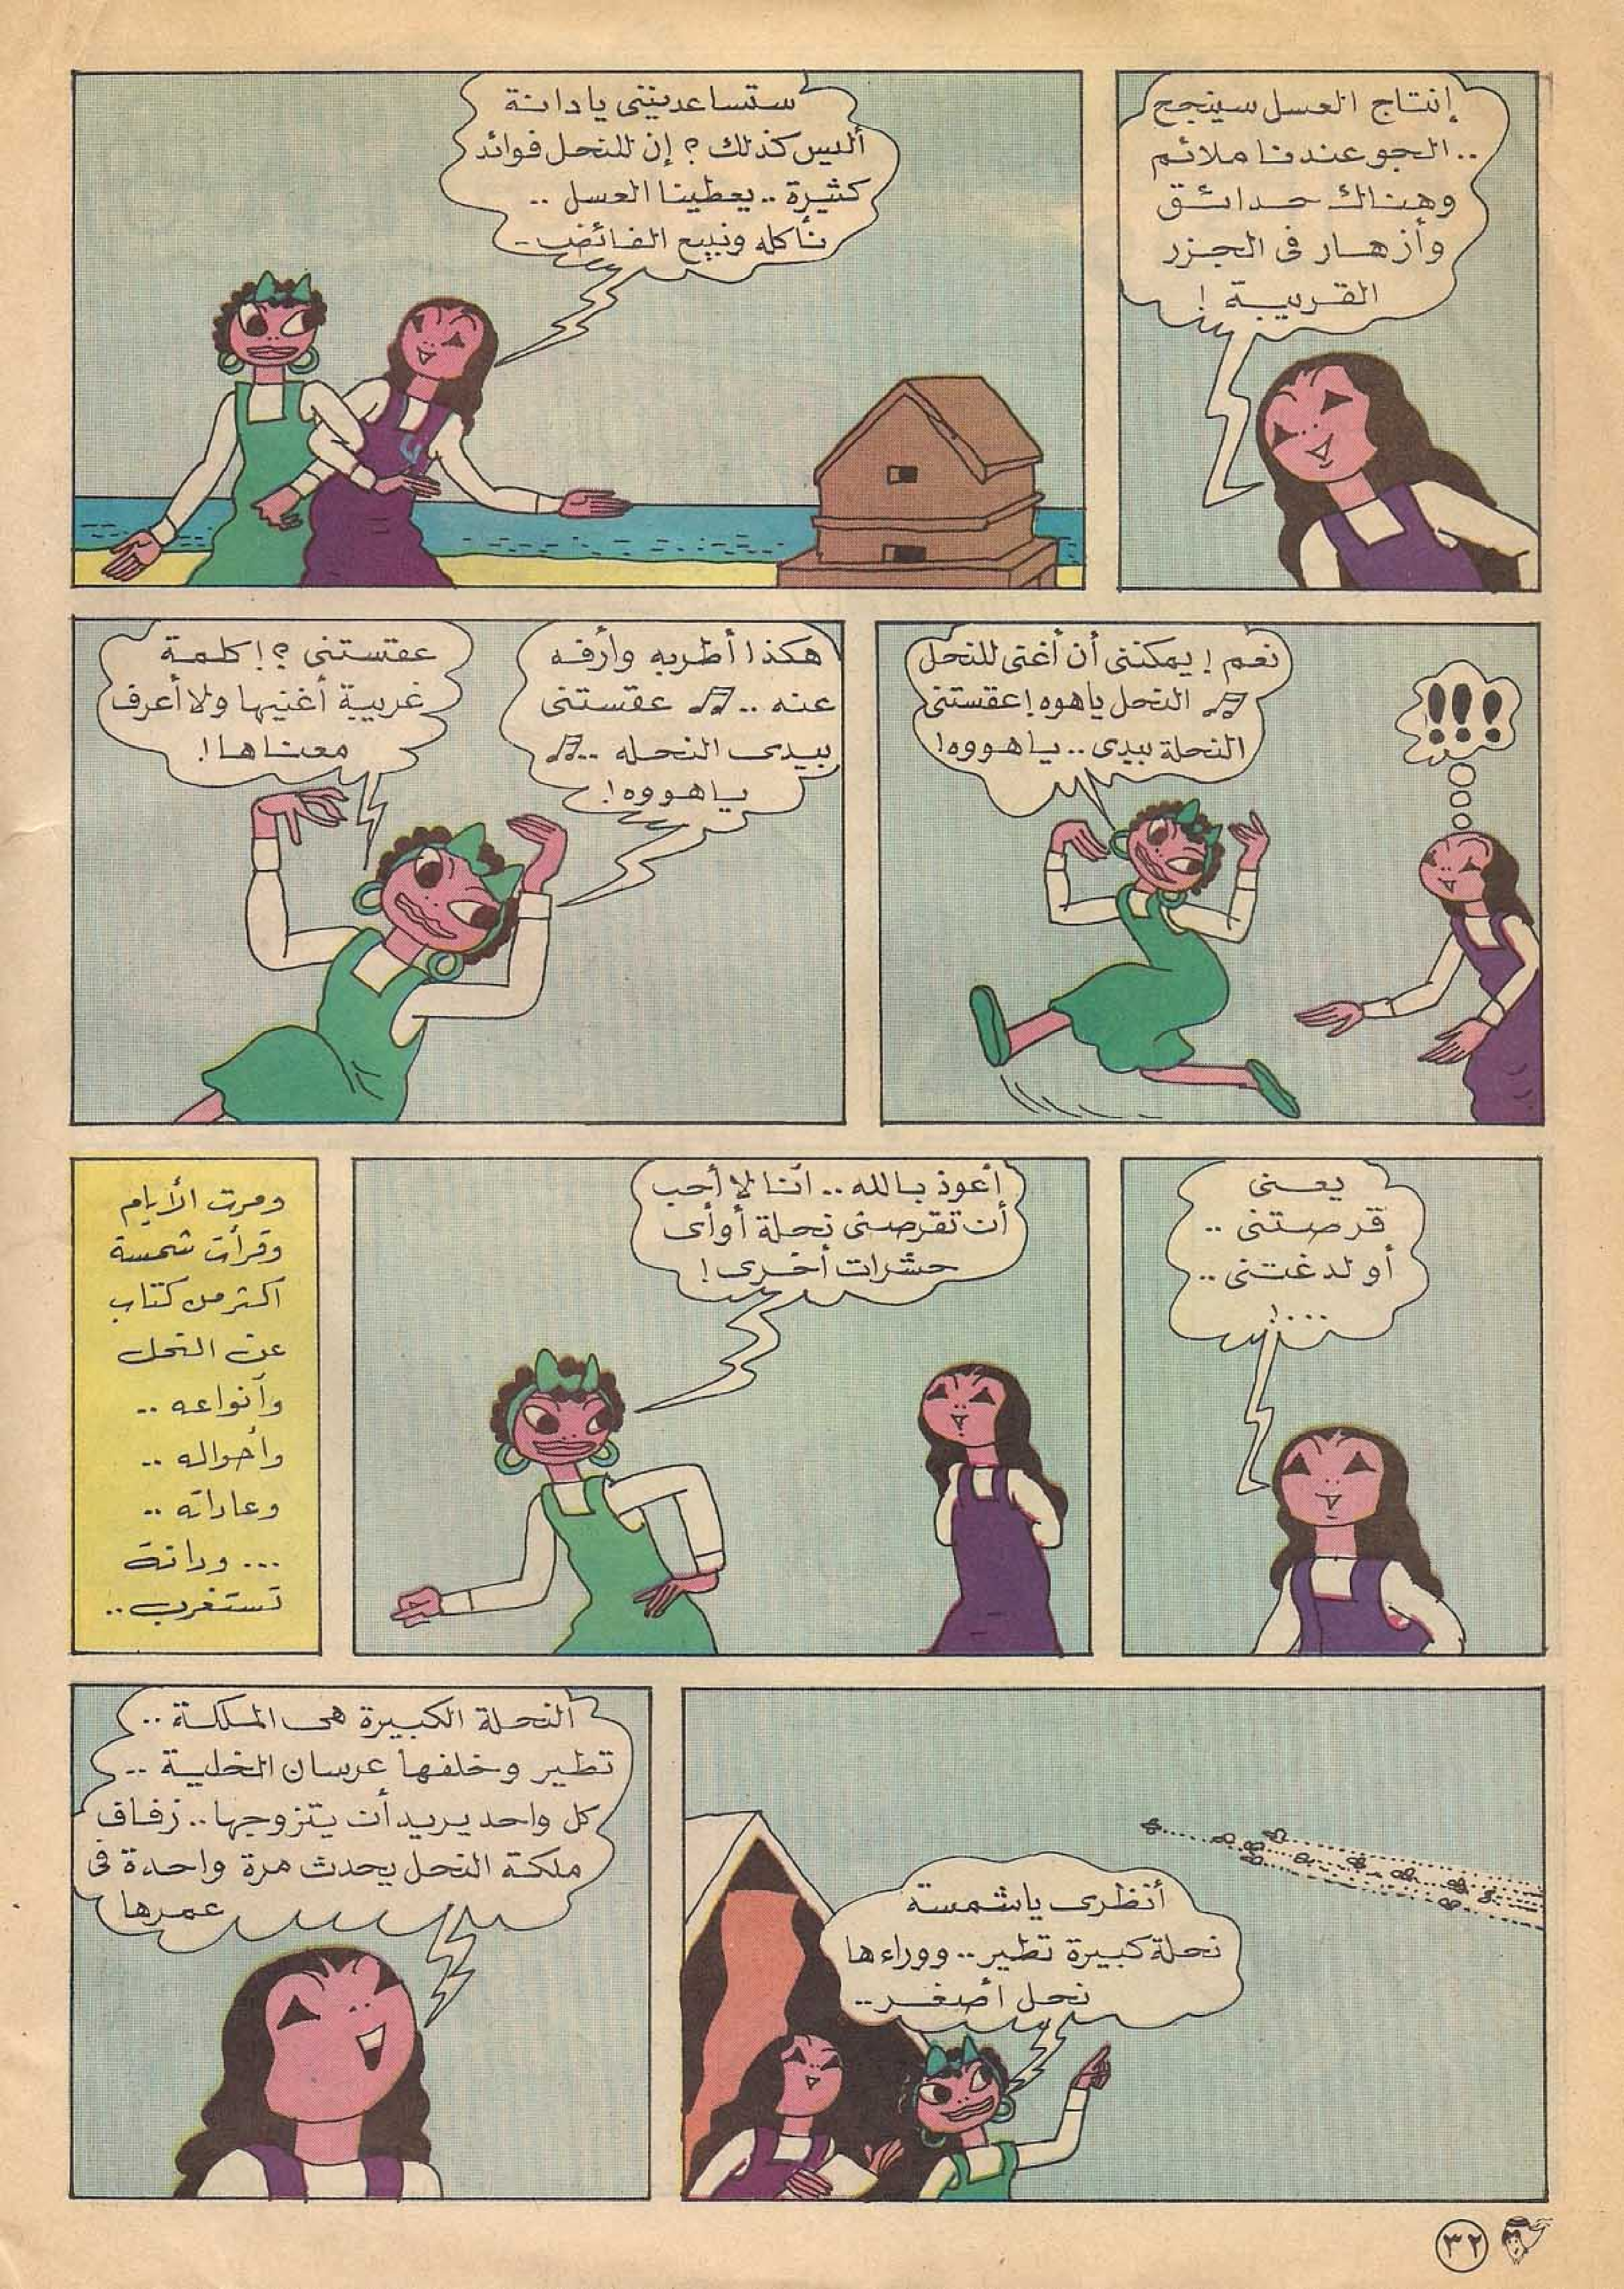 إنتاج العسل سينجح
.. الجو عندنا ملائم
وهناك حدائق
وأزهار فى الجزر
القريبة !
ستساعدينني يا دانة
أليس كذلك ؟ إن للنحل فوائد
كثيرة .. يعطينا العسل ..
نأكله ونبيع الفائض ..
!!!
نعم ! يمكننى أن أغنى للنحل
النحل ياهوه ! عقستنى
النحلة بيدى .. ياهووه !
هكذا أطربه وأرفه
عنه .. عقستنى
بيدى النحله ..
ياهووه !
عقستنى ؟ ! كلمة
غريبة أغنيها ولا أعرف
معناها !
يعنى
قرصتنى ..
أو لدغتنى ..
... !
أعوذ بالله .. أنا لا أحب
أن تقرصنى نحلة أو أى
حشرات أخرى !
ومرت الأيام
وقرأت شمسة
اكثر من كتاب
عن النحل
وأنواعه ..
وأحواله ..
وعاداته ..
... ودانة
تستغرب ..
أنظرى ياشمسة
نحلة كبيرة تطير .. ووراءها
نحل أصغر ..
النحلة الكبيرة هى الملكة ..
تطير وخلفها عرسان الخلية ..
كل واحد يريد أن يتزوجها .. زفاف
ملكة النحل يحدث مرة واحدة فى
عمرها
٣٢